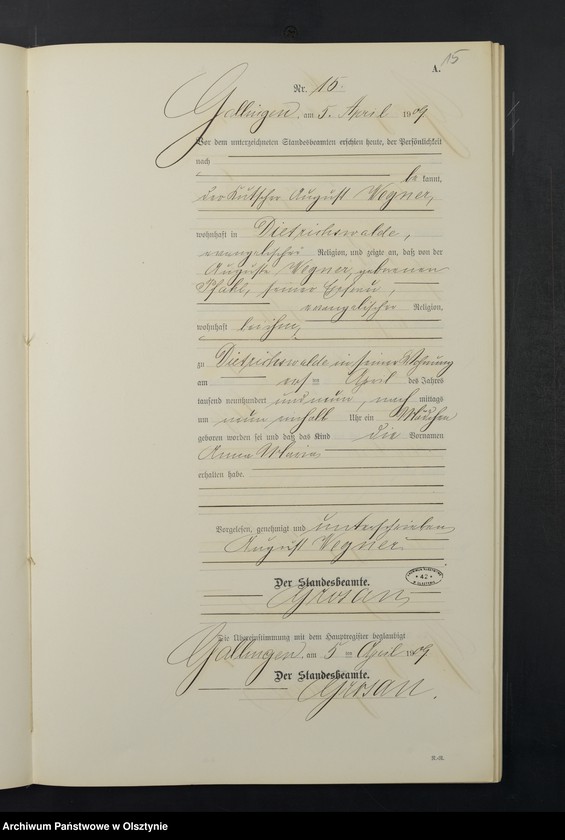 15
A.
Nr. 15.
Gallingen, am 5. April 1909
Vor dem unterzeichneten Standesbeamten erschien heute, der Persönlichkeit
nach
be kannt,
der Kutscher August Wegner,
wohnhaft in Dietrichswalde,
evangelischer Religion, und zeigte an, daß von der
Auguste Wegner, geborenen
Pfahl, seiner Ehefrau,
evangelischer Religion,
wohnhaft bei ihm,
zu Dietrichswalde in seiner Wohnung
am April des Jahres
tausend neunhundert und neun, nach mittags
um neun einhalb Uhr ein Mädchen
geboren worden sei und daß das Kind die Vornamen
Anna Maria
erhalten habe.
Vorgelesen, genehmigt und unterschrieben
August Wegner.
Der Standesbeamte.
Grosan
42
Die Übereinstimmung mit dem Hauptregister beglaubigt
Gallingen, am 5 ten April 1909
Der Standesbeamte.
Grosan.
Archiwum Państwowe w Olsztynie